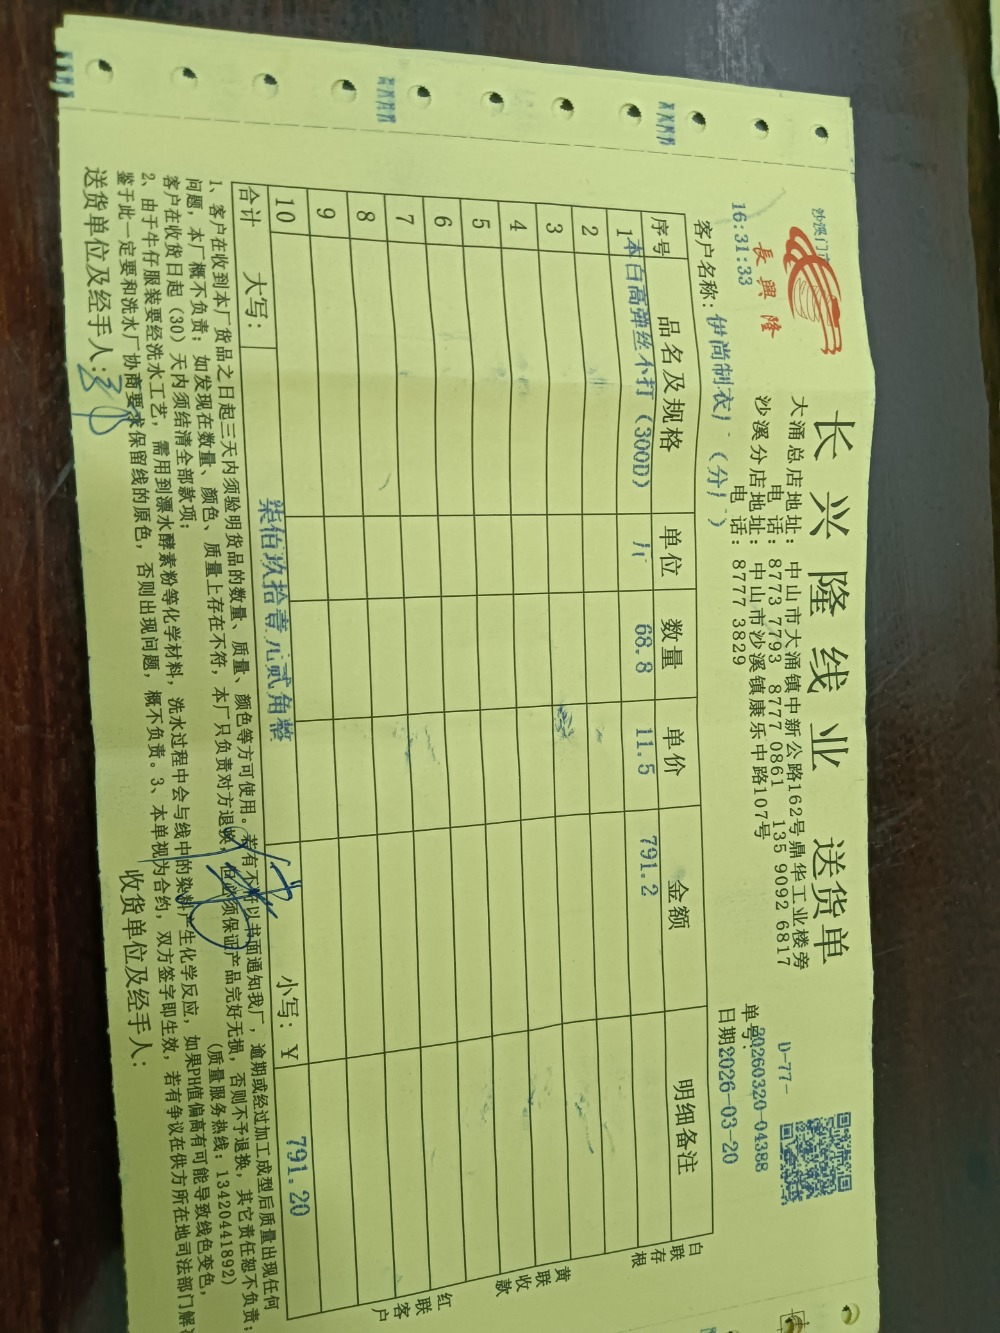 沙溪门市
長興隆
长兴隆线业 送货单
大涌总店地址: 中山市大涌镇中新公路162号鼎华工业楼旁
电 话: 8773 7793 8777 0861 135 9092 6817
沙溪分店地址: 中山市沙溪镇康乐中路107号
电 话: 8777 3829
D-77-
单号: 20260320-04388
日期2026-03-20
16:31:33
客户名称: 伊尚制衣厂(分厂)
序号 品名及规格 单位 数量 单价 金额 明细备注
1 本白高弹丝不打(300D) 斤 68.8 11.5 791.2
2
3
4
5
6
7
8
9
10
合计 大写: 柒佰玖拾壹元贰角整 小写: ¥ 791.20
白联存根
黄联收款
红联客户
1、客户在收到本厂货品之日起三天内须验明货品的数量、质量、颜色等方可使用。若有不符以书面通知我厂,逾期或经过加工成型后质量出现任何
问题,本厂概不负责;如发现在数量、颜色、质量上存在不符,本厂只负责对方退换,但必须保证产品完好无损,否则不予退换,其它责任恕不负责;
客户在收货日起(30)天内须结清全部款项; (质量服务热线:13420441892)
2、由于牛仔服装要经洗水工艺,需用到漂水酵素粉等化学材料,洗水过程中会与线中的染料产生化学反应,如果PH值偏高有可能导致线色变色,
鉴于此一定要和洗水厂协商要求保留线的原色,否则出现问题,概不负责。3、本单视为合约,双方签字即生效,若有争议在供方所在地司法部门解
送货单位及经手人: 收货单位及经手人: